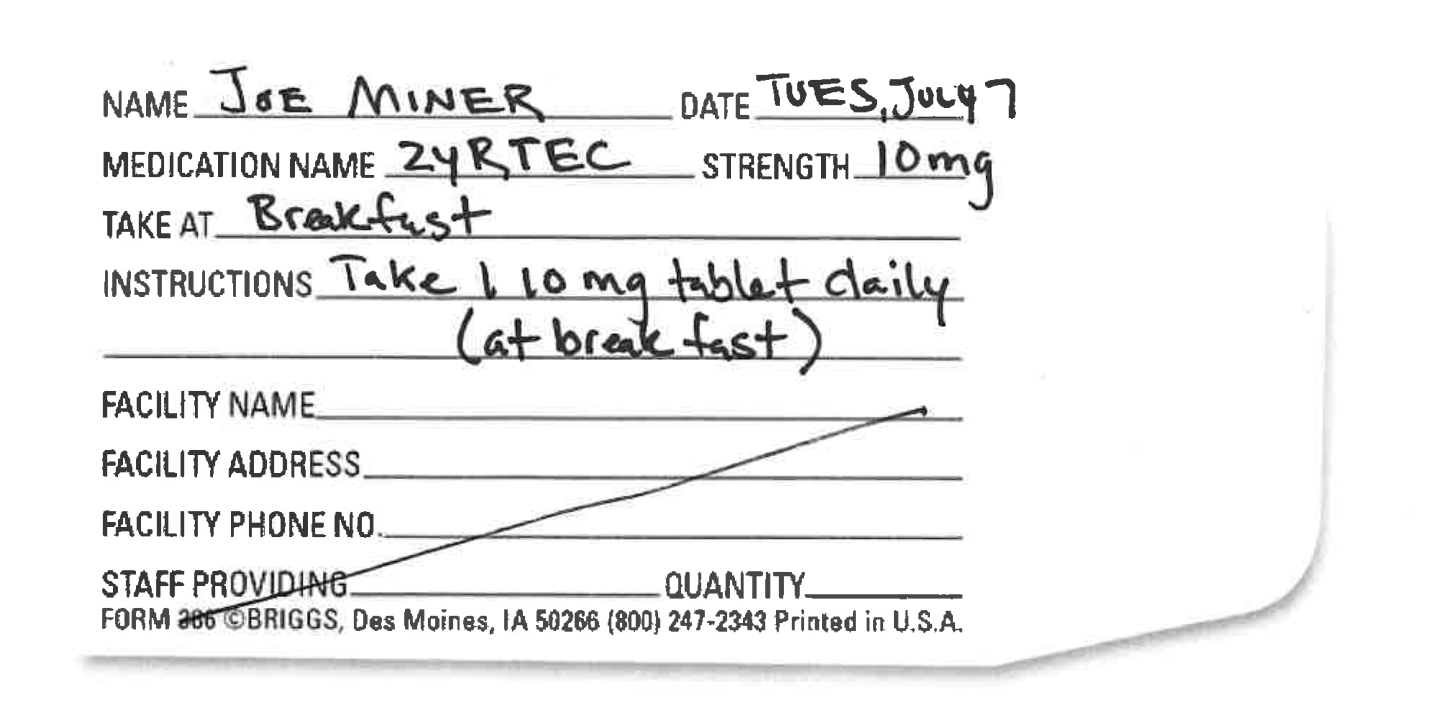 NAME JOE MINER DATE TUES, JULY 7
MEDICATION NAME ZYRTEC STRENGTH 10mg
TAKE AT Breakfast
INSTRUCTIONS Take 1 10 mg tablet daily
(at breakfast)
FACILITY NAME
FACILITY ADDRESS
FACILITY PHONE NO.
STAFF PROVIDING QUANTITY
FORM 386 ©BRIGGS, Des Moines, IA 50266 (800) 247-2343 Printed in U.S.A.